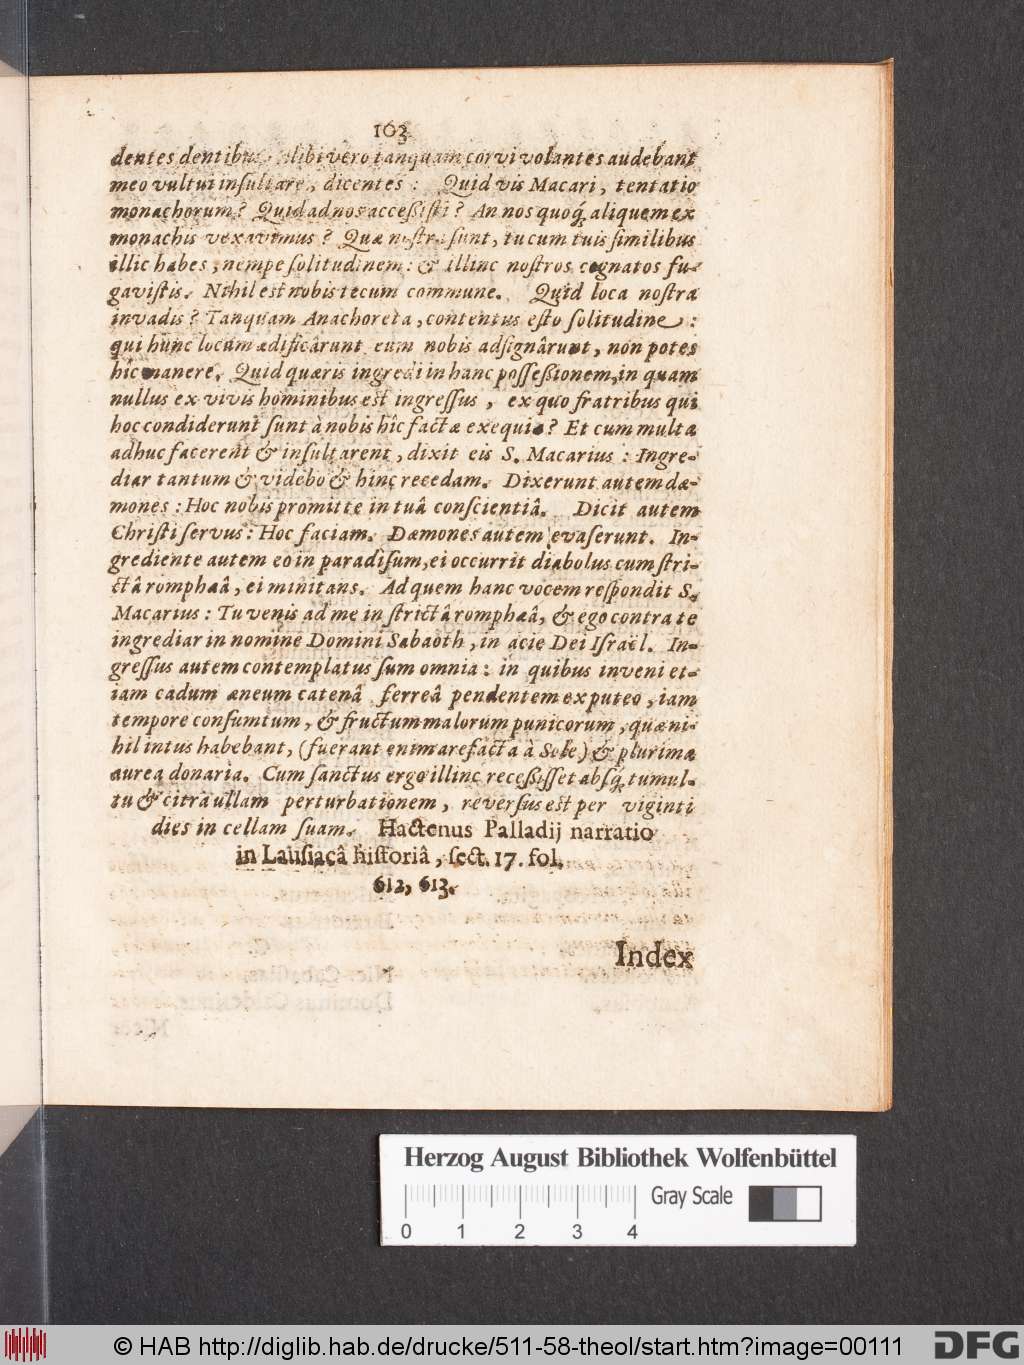 103
dentes dentibus, alibi vero tanquam corvi volantes audebant
meo vultui inſultare, dicentes: Quid vis Macari, tentatio
monachorum? Quid ad nos acceßiſti? An nos quoq́; aliquem ex
monachis vexavimus? Quæ noſtra ſunt, tu cum tuis ſimilibus
illic habes, nempe ſolitudinem: & illinc noſtros cognatos fu-
gaviſtis. Nihil est nobis tecum commune. Quid loca noſtra
invadis? Tanquam Anachoreta, contentus eſto ſolitudine:
qui hunc locum ædificârunt eum nobis adſignârunt, non potes
hîc manere. Quid quæris ingredi in hanc poſſeßionem, in quam
nullus ex vivis hominibus est ingreſſus, ex quo fratribus qui
hoc condiderunt ſunt à nobis hîc factæ exequiæ? Et cum multa
adhuc facerent & inſultarent, dixit eis S. Macarius: Ingre-
diar tantum & videbo & hinc recedam. Dixerunt autem dæ-
mones: Hoc nobis promitte in tuâ conſcientiâ. Dicit autem
Chriſti ſervus: Hoc faciam. Dæmones autem evaſerunt. In-
grediente autem eo in paradiſum, ei occurrit diabolus cum ſtri-
ctâ romphæâ, ei minitans. Ad quem hanc vocem reſpondit S.
Macarius: Tu venis ad me in ſtrictâ romphæâ, & ego contra te
ingrediar in nomine Domini Sabaoth, in acie Dei Iſraël. In-
greſſus autem contemplatus ſum omnia: in quibus inveni et-
iam cadum æneum catenâ ferreâ pendentem ex puteo, iam
tempore conſumtum, & fructum malorum punicorum, quæ ni-
hil intus habebant, (fuerant enim arefacta à Sole) & plurima
aurea donaria. Cum ſanctus ergo illinc receßiſſet abſq́; tumul-
tu & citra ullam perturbationem, reverſus est per viginti
dies in cellam ſuam. Hactenus Palladij narratio
in Lauſiacâ hiſtoriâ, ſect. 17. fol.
612, 613.
Index
Herzog August Bibliothek Wolfenbüttel
Gray Scale
0 1 2 3 4
© HAB http://diglib.hab.de/drucke/511-58-theol/start.htm?image=00111
DFG